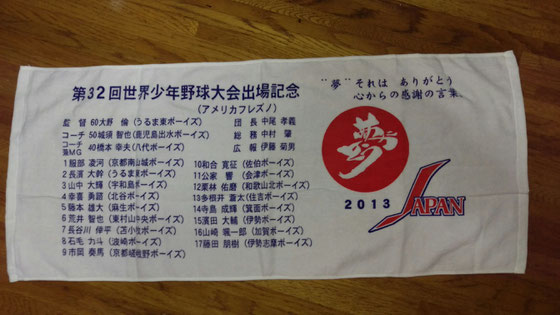 第32回世界少年野球大会出場記念
(アメリカフレズノ)
監 督 60大野 倫(うるま東ボーイズ)
団 長 中尾 孝義
コーチ 50城須 智也(鹿児島出水ボーイズ)
総 務 中村 肇
コーチ兼MG 40橋本 幸夫(八代ボーイズ)
広 報 伊藤 菊男
1服部 凌河(京都南山城ボーイズ)
2長濱 大幹(うるま東ボーイズ)
3山中 大輝(宇和島ボーイズ)
4幸喜 勇諭(北谷ボーイズ)
5藤本 雄大(麻生ボーイズ)
6荒井 智也(東村山中央ボーイズ)
7長谷川 倖平(苫小牧ボーイズ)
8石毛 力斗(波崎ボーイズ)
9市岡 奏馬(京都嵯峨野ボーイズ)
10和合 寛征(佐伯ボーイズ)
11公家 響(会津ボーイズ)
12栗林 佑磨(和歌山北ボーイズ)
13多根井 蓮太(住吉ボーイズ)
14寺島 成輝(箕面ボーイズ)
15濱田 大輔(伊勢ボーイズ)
16山崎 颯一郎(加賀ボーイズ)
17藤田 朋樹(伊勢志摩ボーイズ)
¨夢¨それは ありがとう
心からの感謝の言葉
夢
2013
JAPAN